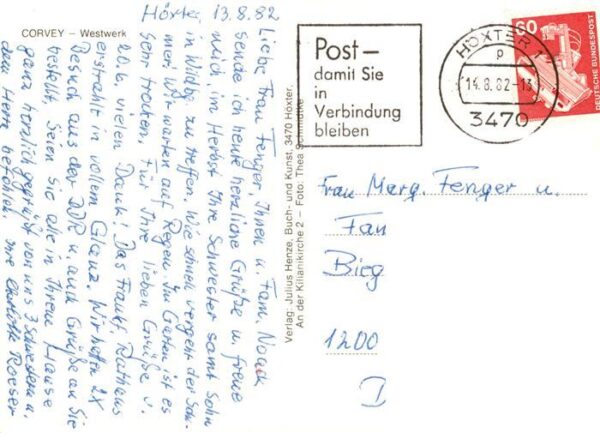 CORVEY – Westwerk
Höxter, 13.8.82
Liebe Frau Fenger, Ihnen u. Fam. Nowak
sende ich heute herzliche Grüße u. freue
mich, im Herbst Ihre Schwester samt Sohn
in Wbbg. zu treffen. Wie schnell vergeht der Som-
mer! Wir warten auf Regen. Im Garten ist es
sehr trocken. Für Ihre lieben Grüße v.
20.6. vielen Dank! Das Frankf. Rathaus
erstrahlt in vollem Glanz. Wir hatten 2x
Besuch aus der DDR u. auch Grüße an Sie
bestellt. Seien Sie alle in Ihrem Hause
ganz herzlich gegrüßt von uns 3 Schwestern u.
dem Herrn befohlen. Ihre Charlotte Roeser
Verlag: Julius Henze, Buch- und Kunst, 3470 Höxter,
An der Kilianikirche 2 – Foto: Thea Schmidtke
Post –
damit Sie
in
Verbindung
bleiben
HÖXTER 1
p
14.8.82-13
3470
60
DEUTSCHE BUNDESPOST
Frau Marg. Fenger u.
Fam
Bieg
1200
I